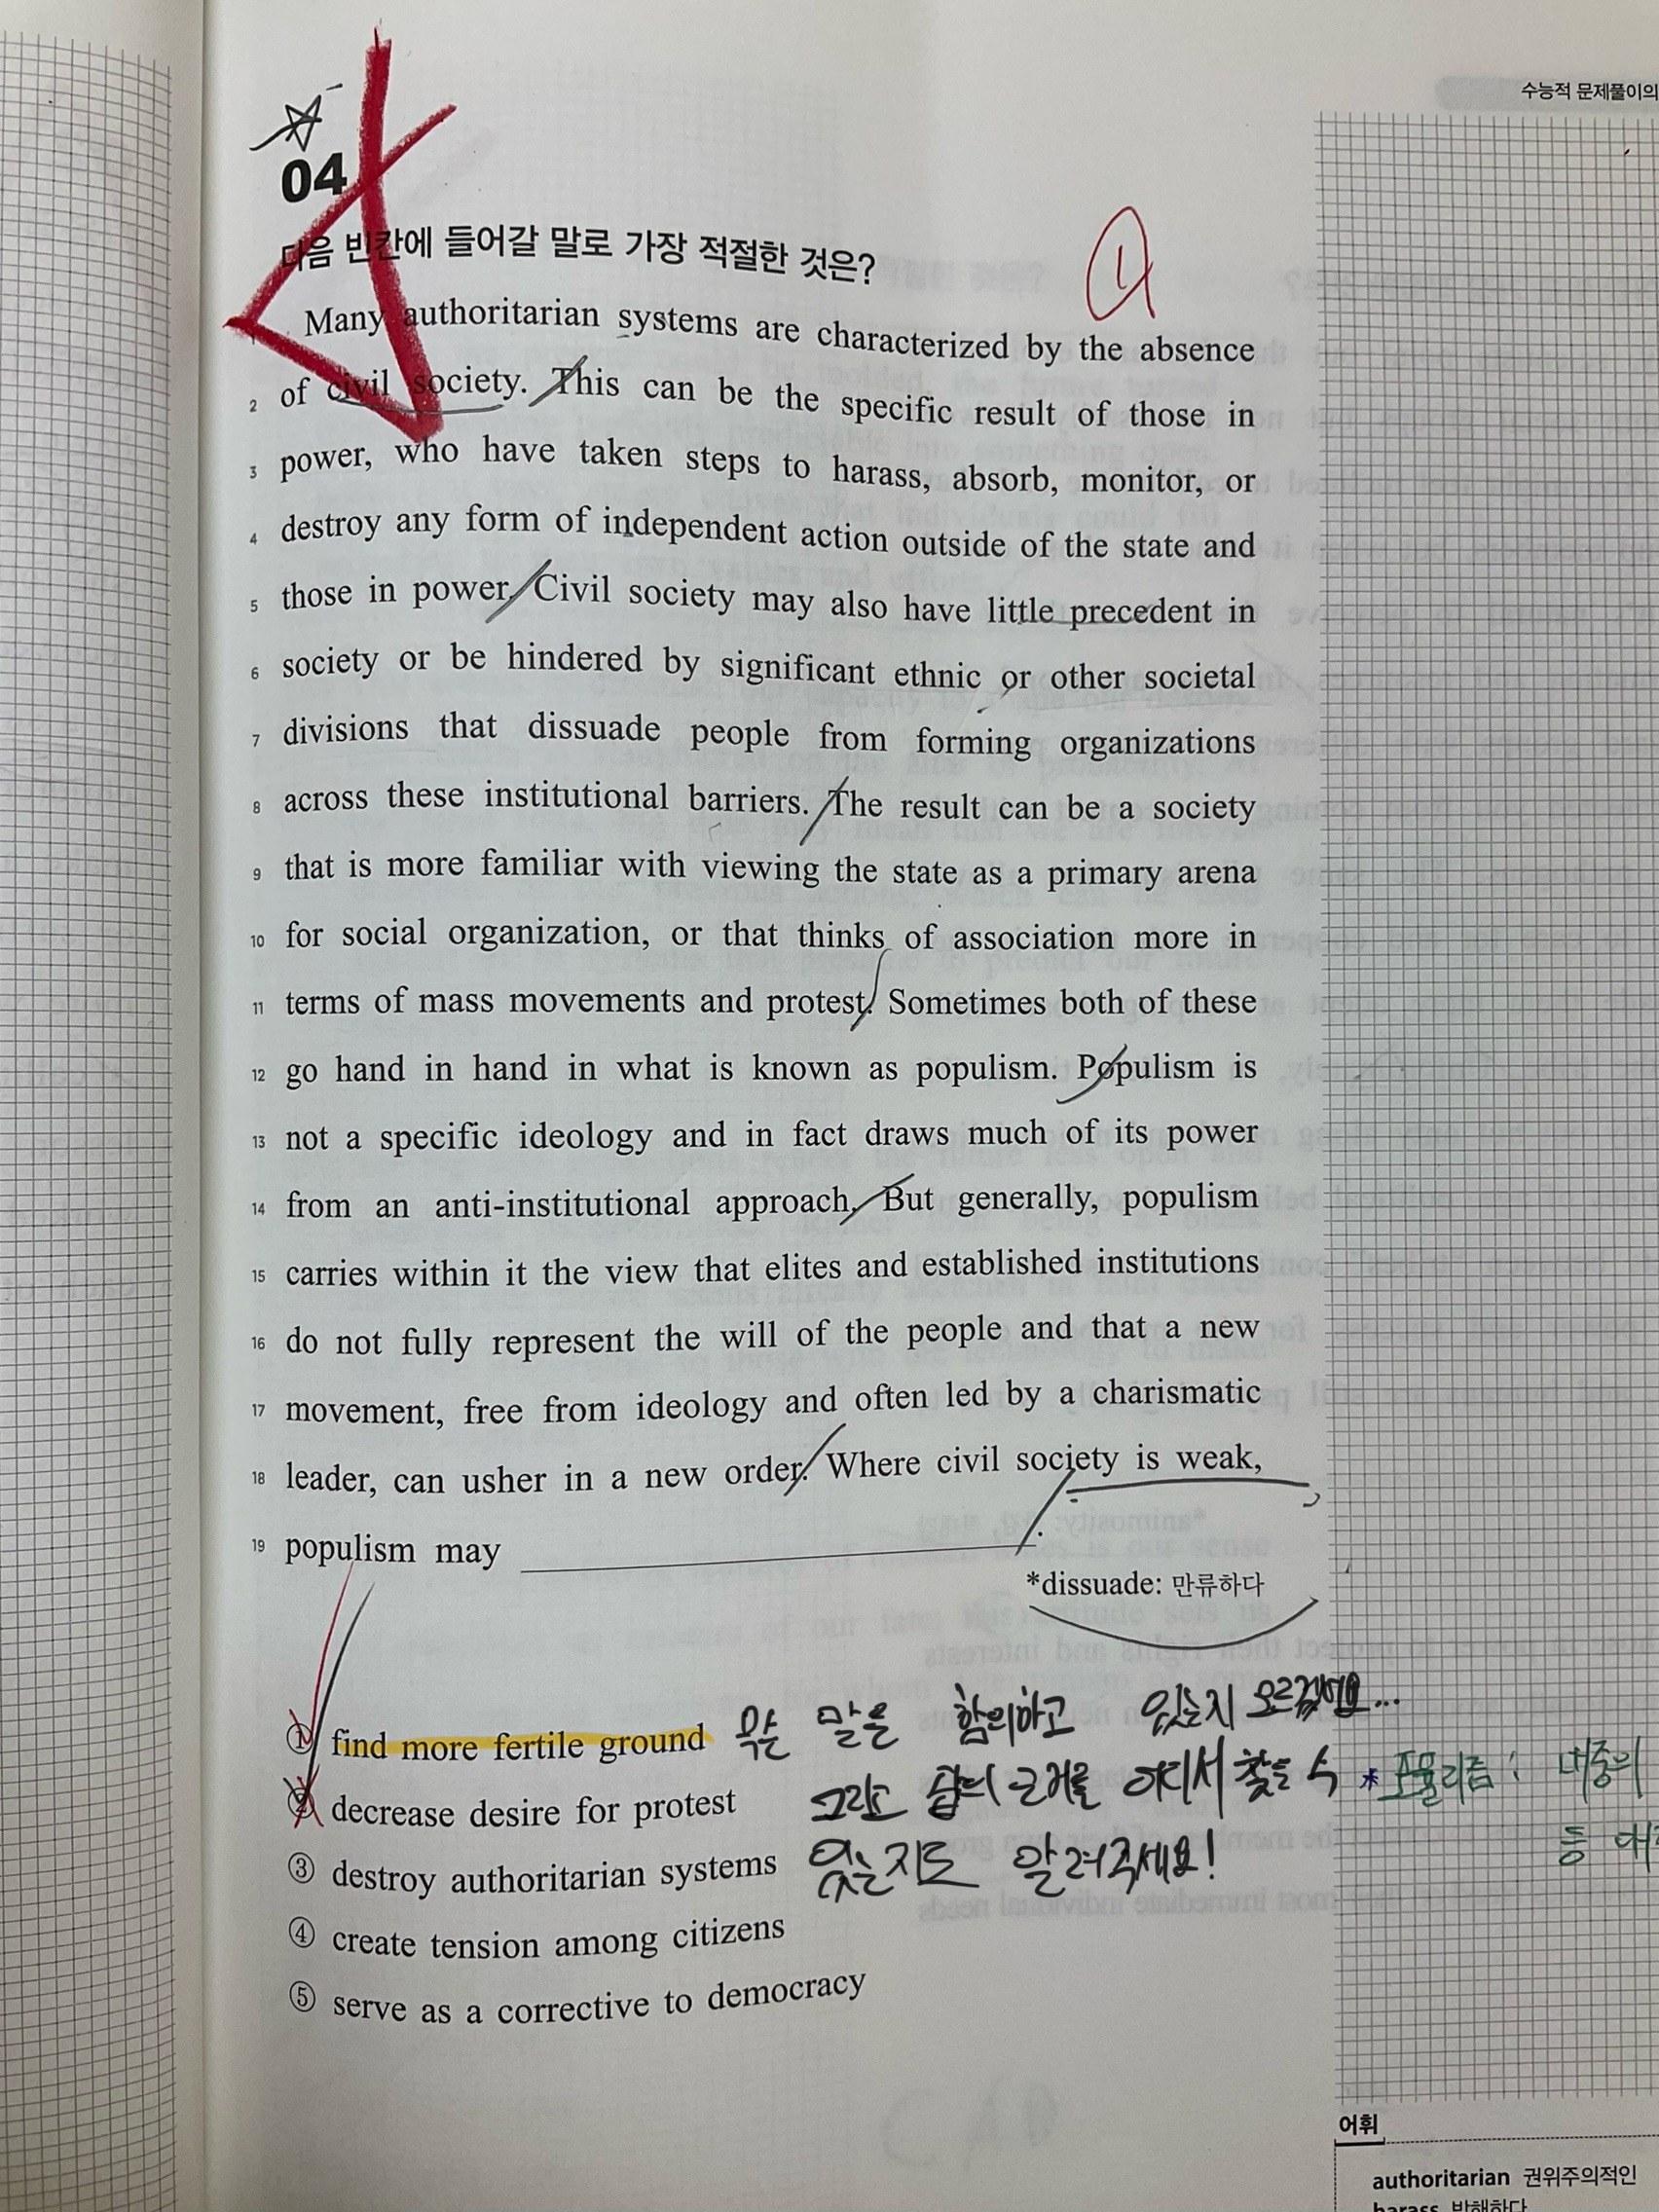 수능적 문제풀이의
04
다음 빈칸에 들어갈 말로 가장 적절한 것은?
①
Many authoritarian systems are characterized by the absence
2 of civil society. This can be the specific result of those in
3 power, who have taken steps to harass, absorb, monitor, or
4 destroy any form of independent action outside of the state and
5 those in power. Civil society may also have little precedent in
6 society or be hindered by significant ethnic or other societal
7 divisions that dissuade people from forming organizations
8 across these institutional barriers. The result can be a society
9 that is more familiar with viewing the state as a primary arena
10 for social organization, or that thinks of association more in
11 terms of mass movements and protest. Sometimes both of these
12 go hand in hand in what is known as populism. Populism is
13 not a specific ideology and in fact draws much of its power
14 from an anti-institutional approach. But generally, populism
15 carries within it the view that elites and established institutions
16 do not fully represent the will of the people and that a new
17 movement, free from ideology and often led by a charismatic
18 leader, can usher in a new order. Where civil society is weak,
19 populism may ____________.
*dissuade: 만류하다
① find more fertile ground 무슨 말을 함의하고 있는지 모르겠어요...
② decrease desire for protest 그리고 답의 근거를 어디서 찾을 수
* 포퓰리즘 : 대중의
③ destroy authoritarian systems 있는지도 알려주세요!
등
④ create tension among citizens
⑤ serve as a corrective to democracy
어휘
authoritarian 권위주의적인
harass 박해하다